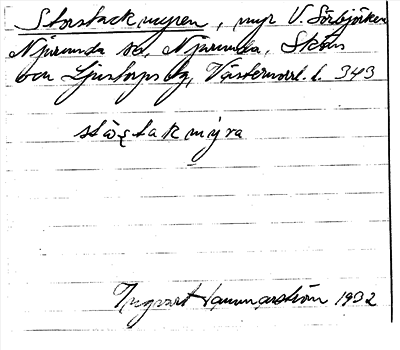 Storstackmyren, myr V. Sörbjörken
Njurunda sn, Njurunda, Sköns
och Ljustorps tg, Västernorrl. l. 343
stackmýra
Ingvart Hammarström 1932